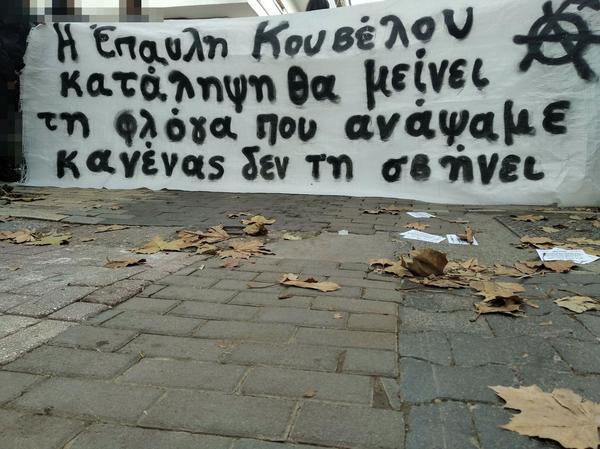 Η Έπαυλη Κουβέλου
κατάληψη θα μείνει
τη φλόγα που ανάψαμε
κανένας δεν τη σβήνει